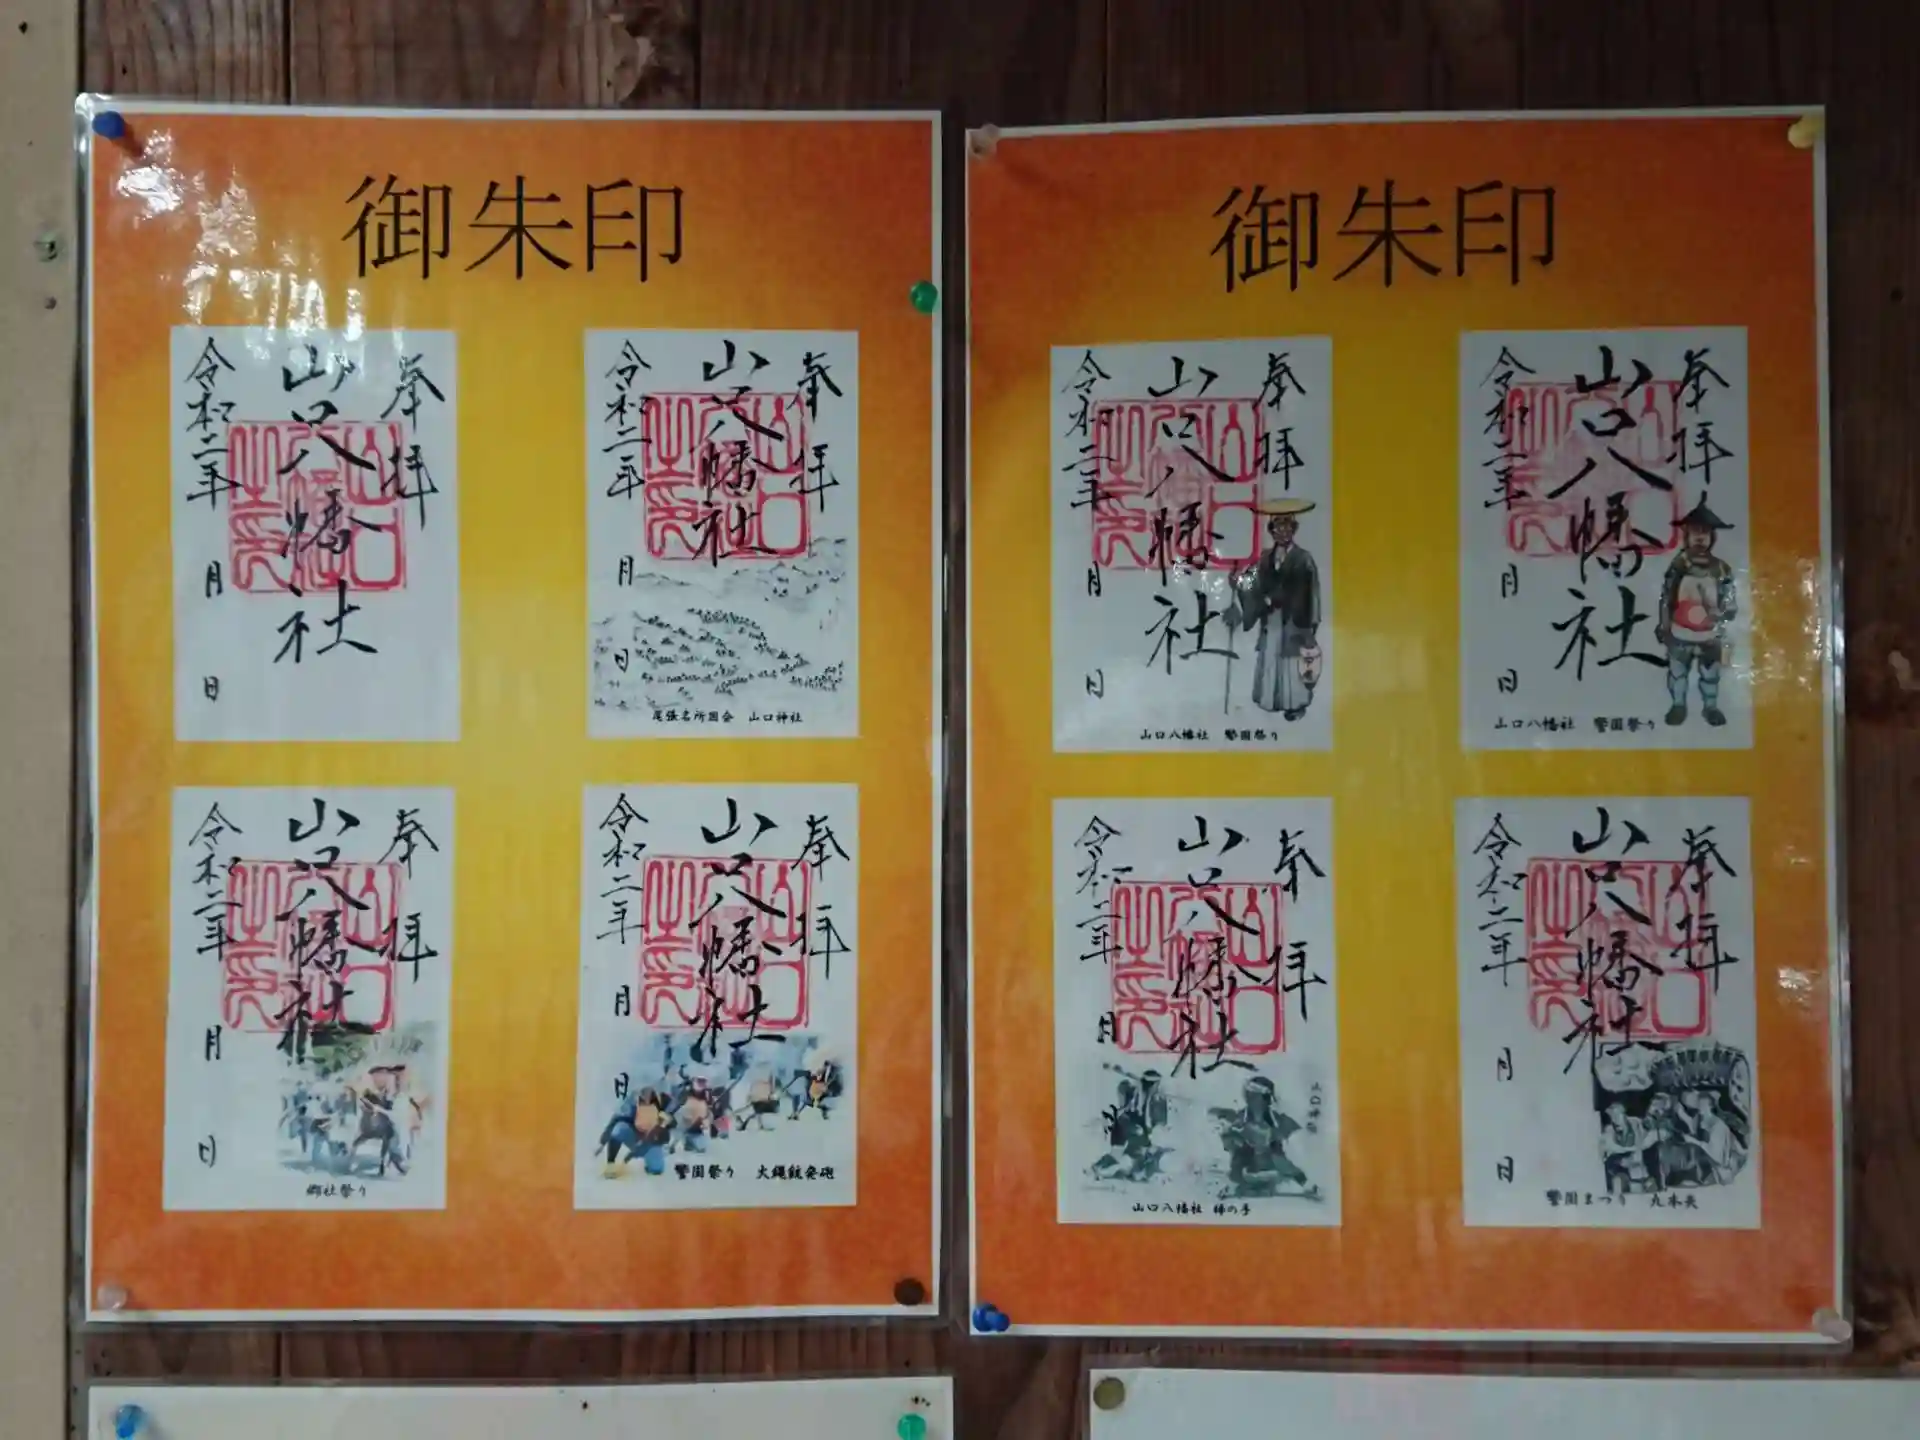 御朱印
奉拝
山口八幡社
令和二年
月
日
奉拝
山口八幡社
令和二年
月
日
尾張名所図会 山口神社
奉拝
山口八幡社
令和二年
月
日
郷社祭り
奉拝
山口八幡社
令和二年
月
日
警固祭り 火縄銃発砲
御朱印
奉拝
山口八幡社
令和二年
月
日
山口八幡社 警固祭り
奉拝
山口八幡社
令和二年
月
日
山口八幡社 警固祭り
奉拝
山口八幡社
令和二年
月
山口八幡社 棒の手
奉拝
山口八幡社
令和二年
月
日
警固まつり